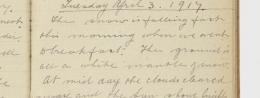 Tuesday April 3. 1917.
The snow is falling fast
this morning when we went
to breakfast. The ground is
all a white mantle of snow.
At mid day the clouds cleared
away and the sun shone